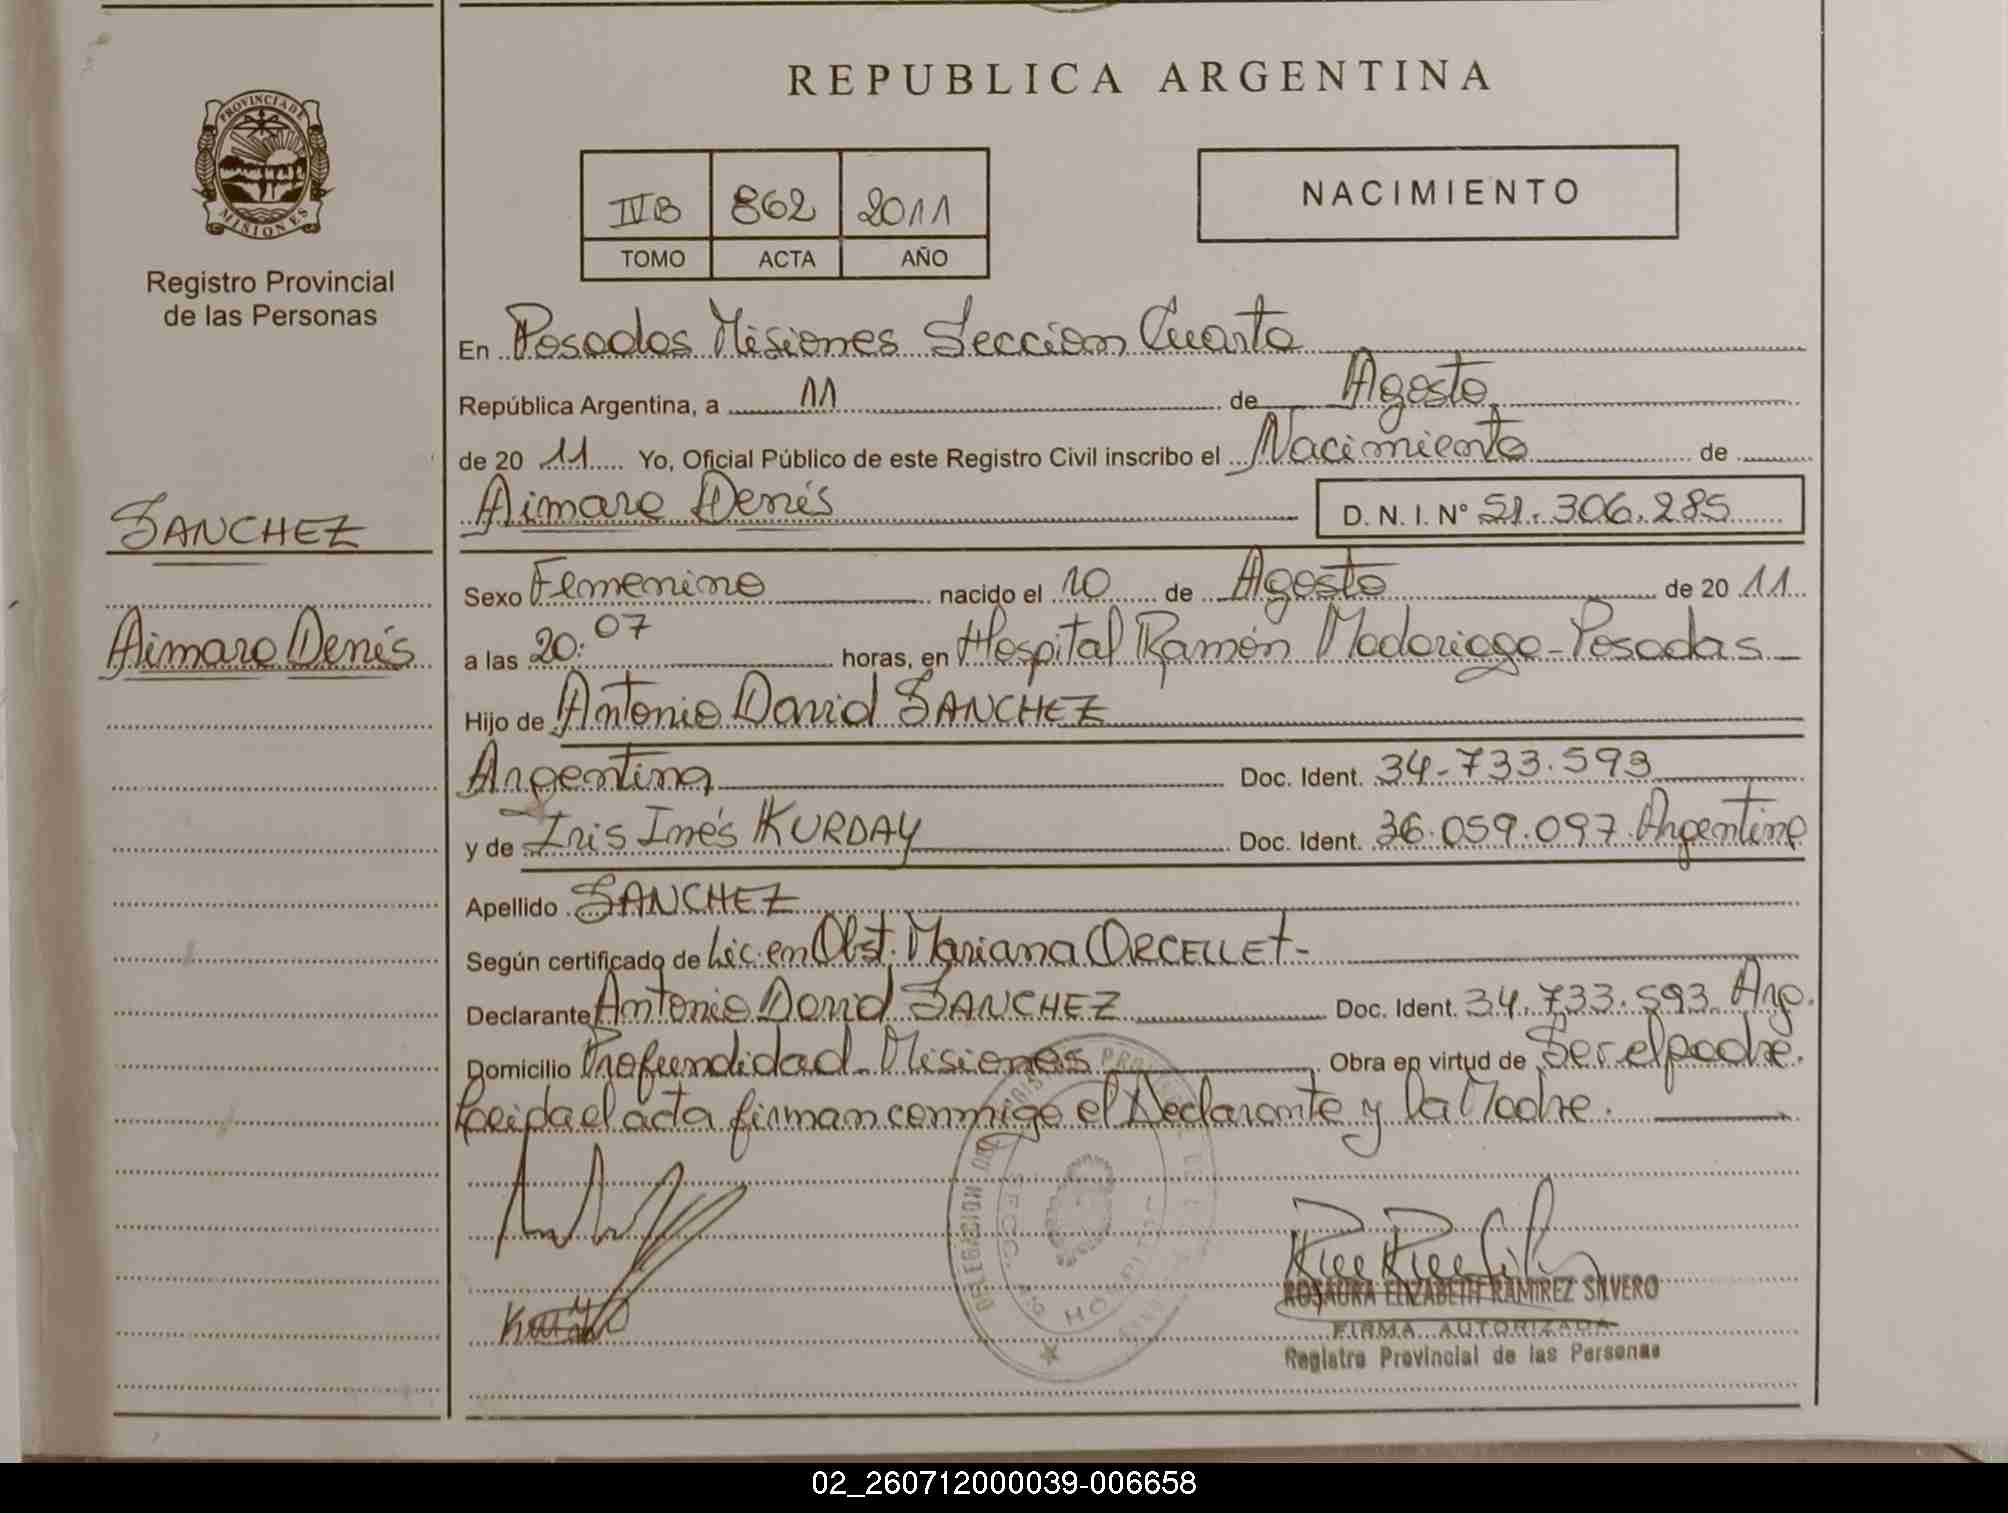 REPUBLICA ARGENTINA
PROVINCIA DE
MISIONES
Registro Provincial
de las Personas
IVB 862 2011
TOMO ACTA AÑO
NACIMIENTO
En Posadas Misiones Sección Cuarta
República Argentina, a 11 de Agosto
de 20 11 Yo, Oficial Público de este Registro Civil inscribo el Nacimiento de
Aimara Denís D. N. I. N° 51.306.285
SANCHEZ
Aimara Denís
Sexo Femenino nacido el 10 de Agosto de 20 11
a las 20:07 horas, en Hospital Ramón Madariaga - Posadas
Hijo de Antonio David SANCHEZ
Argentina Doc. Ident. 34-733.593
y de Iris Inés KURDAY Doc. Ident. 36.059.097 Argentina
Apellido SANCHEZ
Según certificado de Lic. en Obst. Mariana ORCELLET-
Declarante Antonio David SANCHEZ Doc. Ident. 34.733.593 Arg.
Domicilio Profundidad - Misiones Obra en virtud de Ser el padre.
Leida el acta firman conmigo el Declarante y la Madre.
DELEGACION
ROSAURA ELIZABETH RAMIREZ SILVERO
FIRMA AUTORIZADA
Registro Provincial de las Personas
02_260712000039-006658